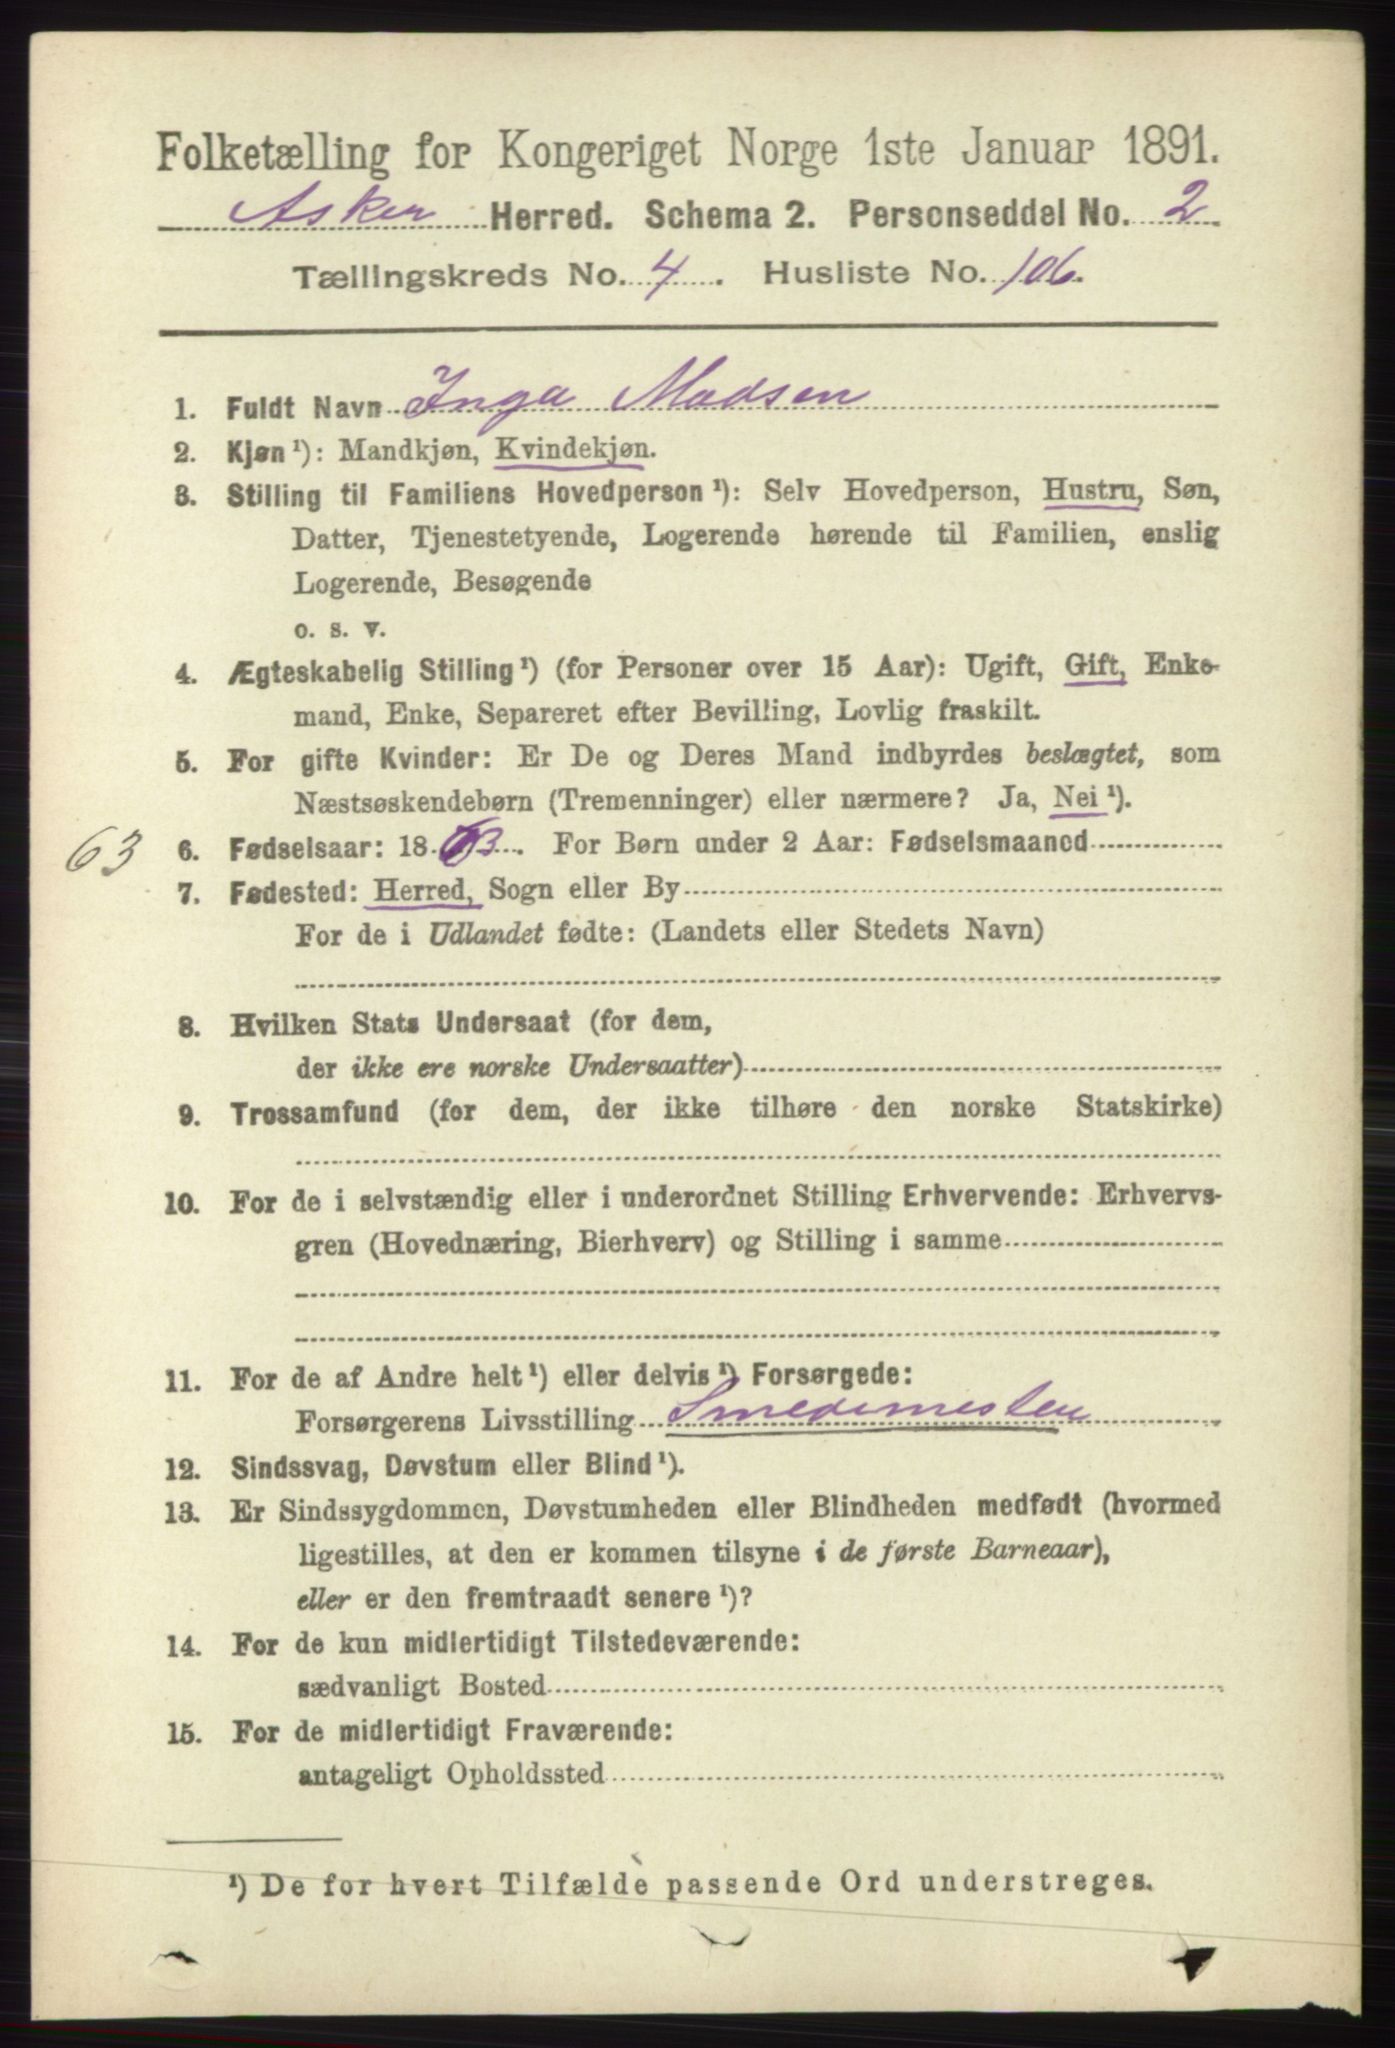 Folketælling for Kongeriget Norge 1ste Januar 1891.
Asker Herred. Schema 2. Personseddel No. 2.
Tællingskreds No. 4. Husliste No. 106.
1. Fuldt Navn Inga Madsen
2. Kjøn ¹): Mandkjøn, Kvindekjøn.
3. Stilling til Familiens Hovedperson ¹): Selv Hovedperson, Hustru, Søn,
Datter, Tjenestetyende, Logerende hørende til Familien, enslig
Logerende, Besøgende
o. s. v.
4. Ægteskabelig Stilling ¹) (for Personer over 15 Aar): Ugift, Gift, Enke-
mand, Enke, Separeret efter Bevilling, Lovlig fraskilt.
5. For gifte Kvinder: Er De og Deres Mand indbyrdes beslægtet, som
Næstsøskendebørn (Tremenninger) eller nærmere? Ja, Nei ¹).
63 6. Fødselsaar: 1863. For Børn under 2 Aar: Fødselsmaaned
7. Fødested: Herred, Sogn eller By
For de i Udlandet fødte: (Landets eller Stedets Navn)
8. Hvilken Stats Undersaat (for dem,
der ikke ere norske Undersaatter)
9. Trossamfund (for dem, der ikke tilhøre den norske Statskirke)
10. For de i selvstændig eller i underordnet Stilling Erhvervende: Erhvervs-
gren (Hovednæring, Bierhverv) og Stilling i samme
11. For de af Andre helt ¹) eller delvis ¹) Forsørgede:
Forsørgerens Livsstilling Smedemester
12. Sindssvag, Døvstum eller Blind ¹).
13. Er Sindssygdommen, Døvstumheden eller Blindheden medfødt (hvormed
ligestilles, at den er kommen tilsyne i de første Barneaar),
eller er den fremtraadt senere ¹)?
14. For de kun midlertidigt Tilstedeværende:
sædvanligt Bosted
15. For de midlertidigt Fraværende:
antageligt Opholdssted
¹) De for hvert Tilfælde passende Ord understreges.